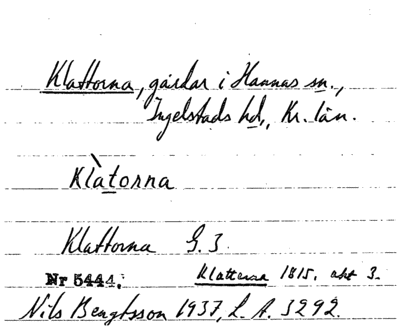 Klattorna, gårdar i Hannas sn.,
Ingelstads hd., Kr. län.
Klàtorna
Klattorna G. J.
Nr 5444. Klatterna 1815. akt 3.
Nils Bengtsson 1937, L. A. 5292.